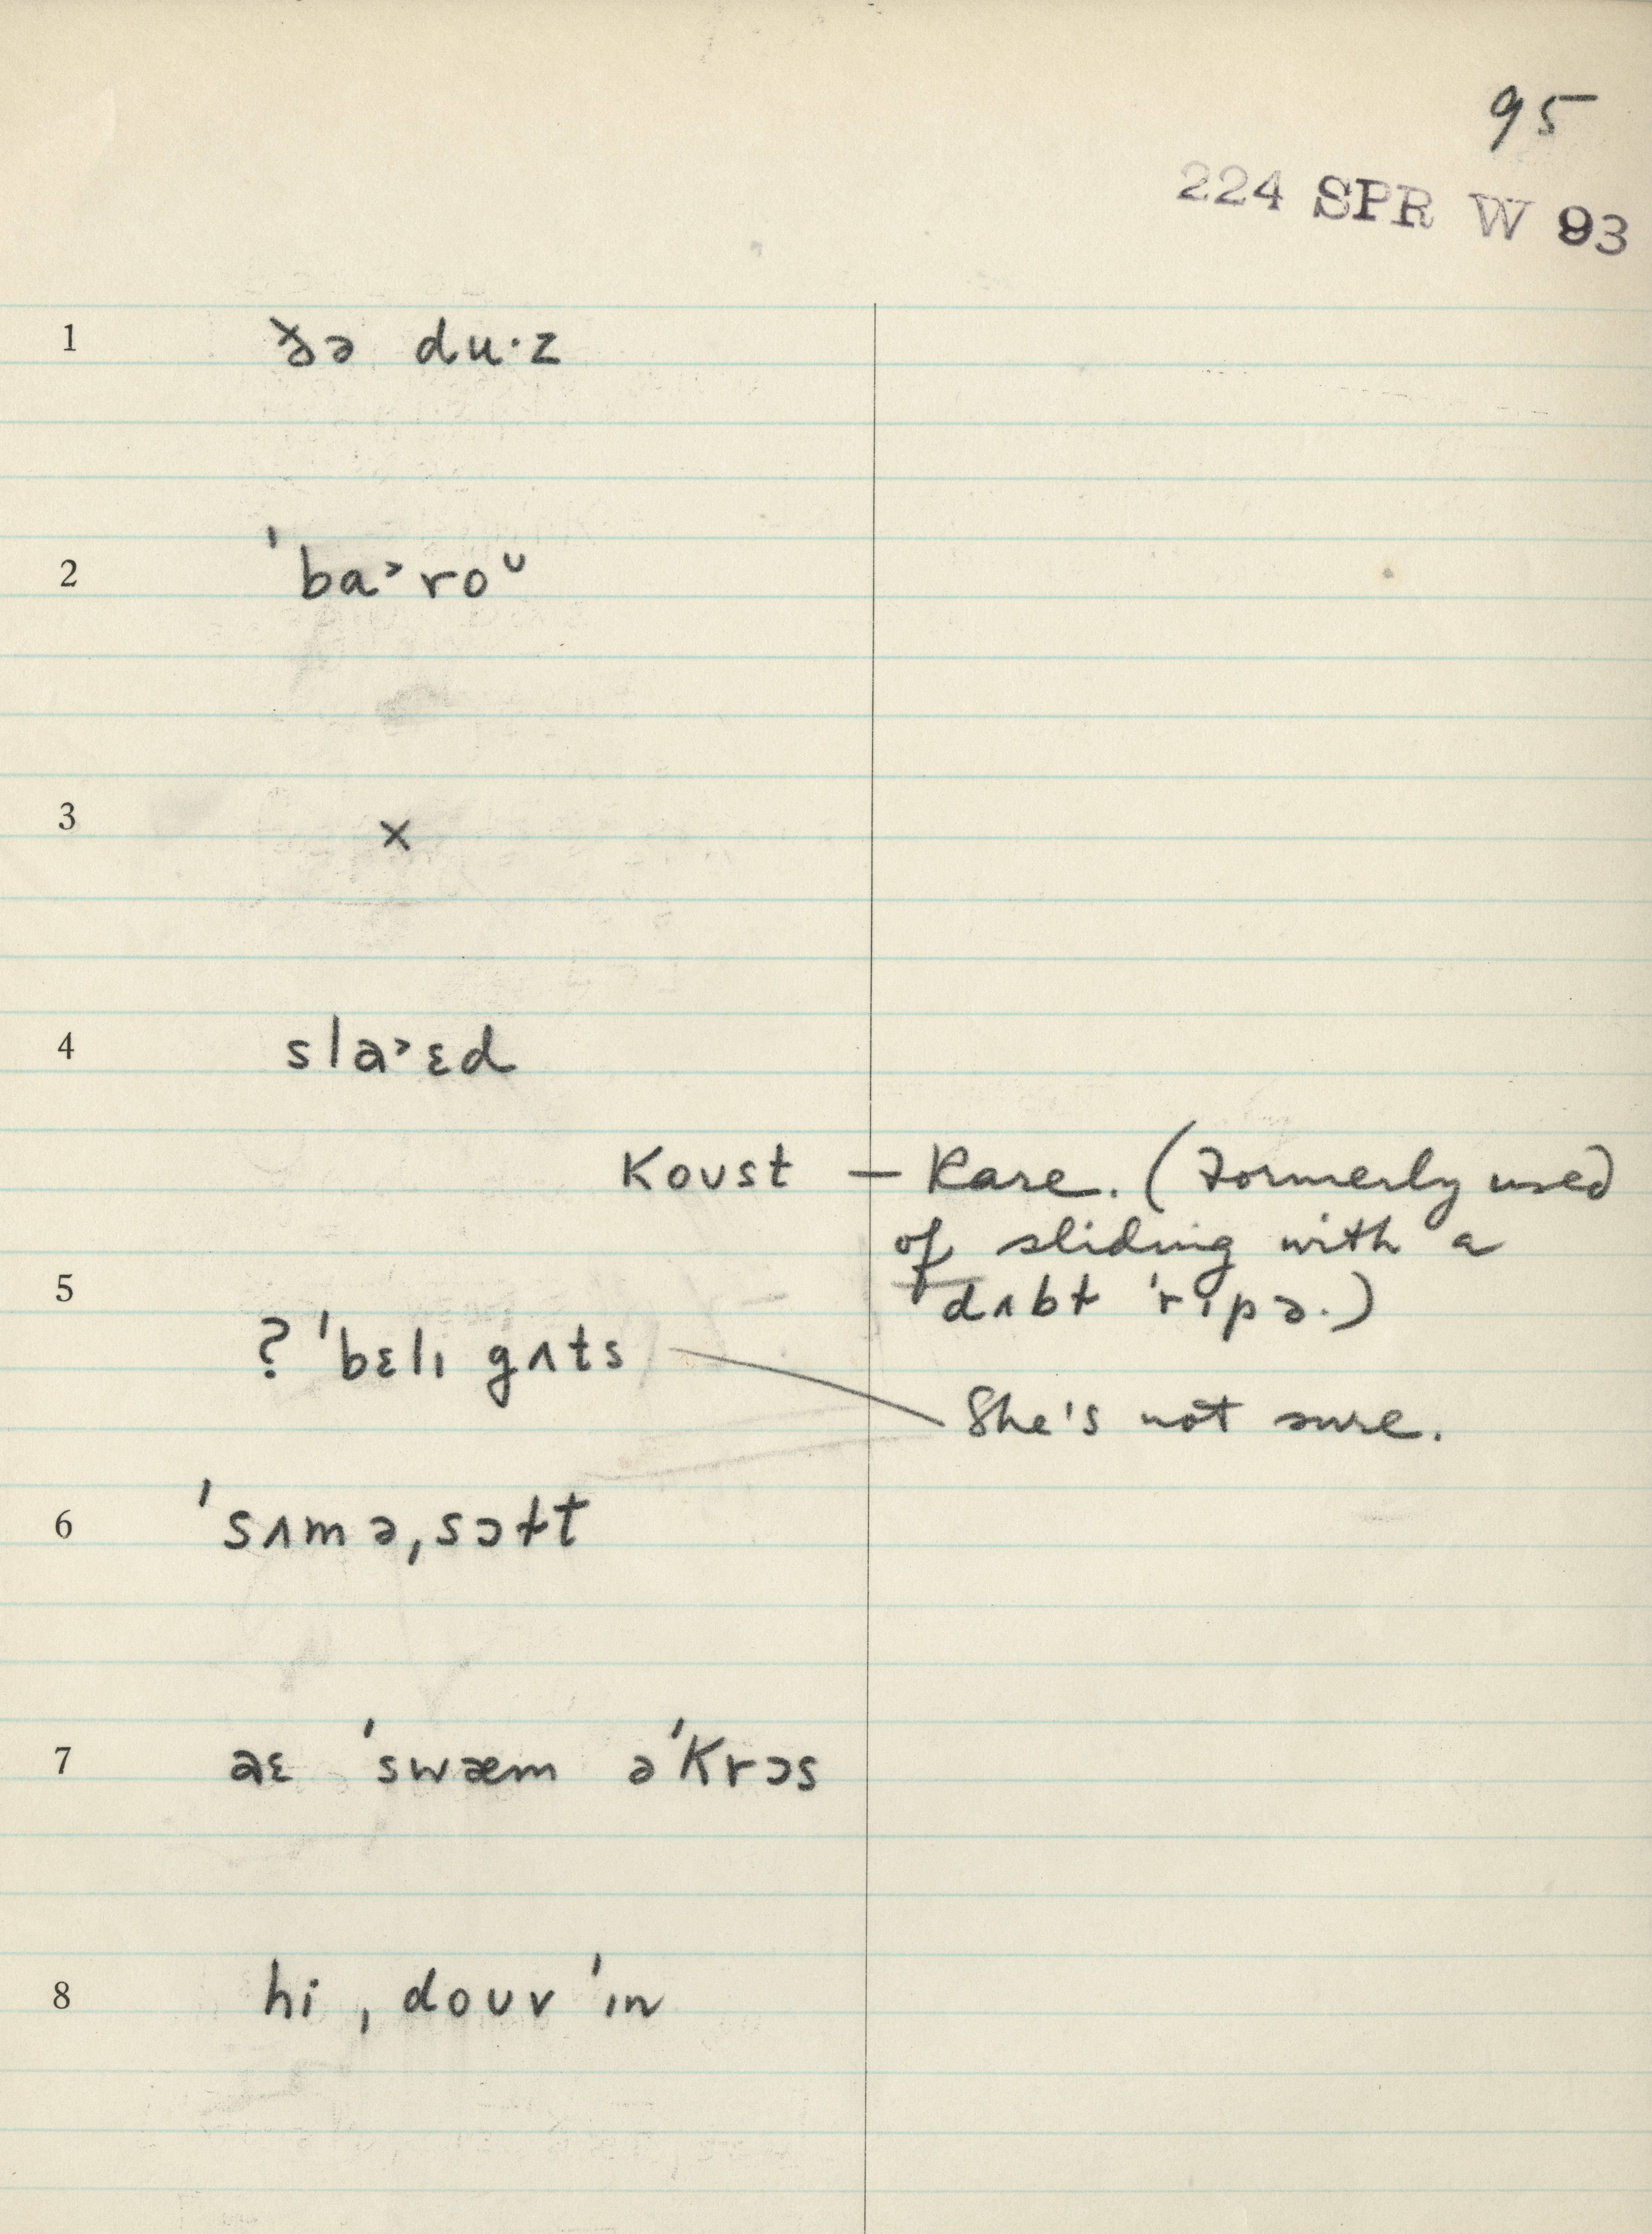 95
224 SPR W 93
1 ðə du·z
2 ˈba˃roᴜ
3 x
4 sla˃ɛd
Koust — Rare. (Formerly used
of sliding with a
dʌbɫ ˈrɪpə.)
5
? ˈbɛlɪ gʌts
She's not sure.
6 ˈsʌmə,sɔɫt
7 aɛ ˈswæm əˈKrɔs
8 hi ,douv ˈɪn